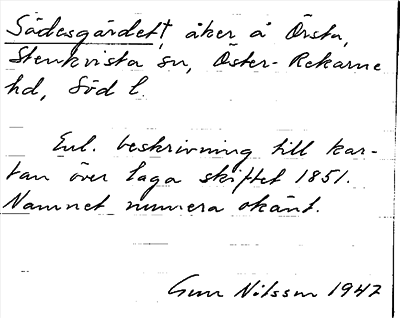 Sädesgärdet†, åker å Örsta,
Stenkvista sn, Öster-Rekarne
hd, Söd l.
Enl. beskrivning till kar-
tan över laga skiftet 1851.
Namnet numera okänt.
Gun Nilsson 1947